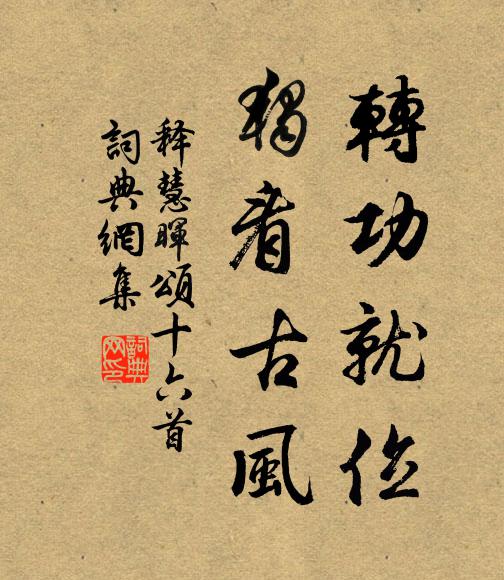 轉功就位
獨看古風
釋慧暉頌十六首
詞典網集
詞典网印